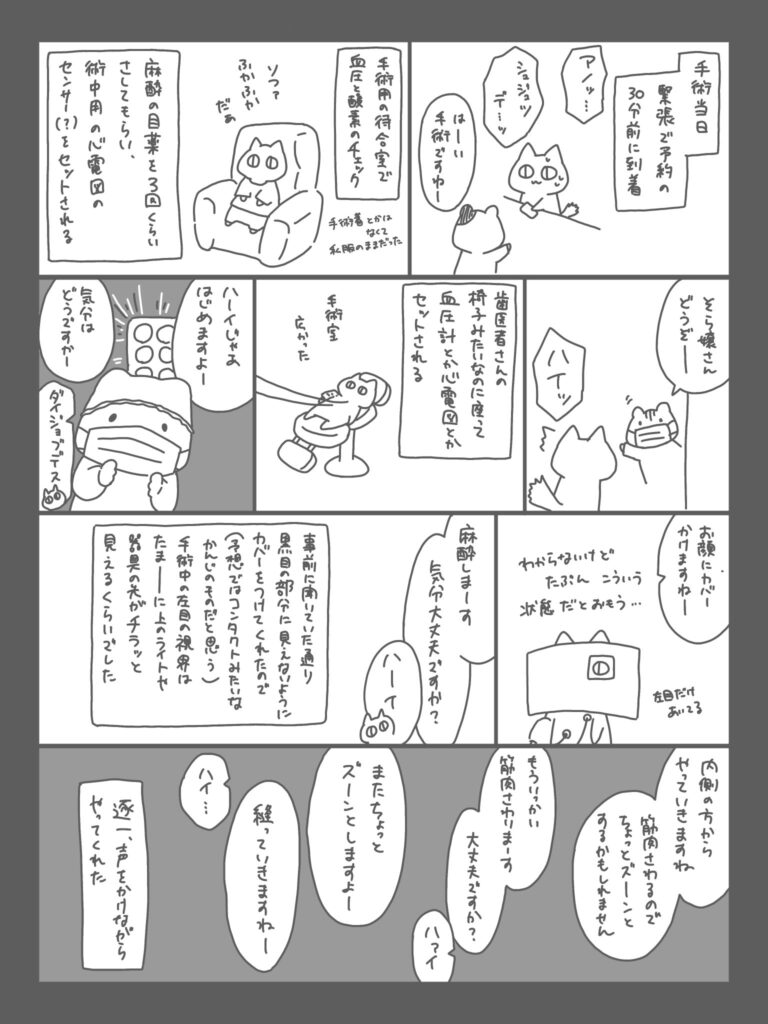 手術当日
緊張で予約の
30分前に到着
アノッ…
シュジュツ
デ…ッ
はーい
手術ですねー
手術用の待合室で
血圧と酸素のチェック
ソファ
ふかふか
だぁ
手術着とかは
なくて
私服のままだった
麻酔の目薬を3回くらい
さしてもらい、
術中用の心電図の
センサー(?)をセットされる
そら嬢さん
どうぞー
ハイッ
歯医者さんの
椅子みたいなのに座って
血圧計とか心電図とか
セットされる
手術室
広かった
ハーイじゃあ
はじめますよー
気分は
どうですかー
ダイジョブデス
お顔にカバー
かけますねー
わからないけど
たぶん こういう
状態だとおもう…
左目だけ
あいてる
麻酔しまーす
気分大丈夫ですか?
ハーイ
事前に聞いていた通り
黒目の部分に見えないように
カバーをつけてくれたので
(予想ではコンタクトみたいな
かんじのものだと思う)
手術中の左目の視界は
たまーに上のライトや
器具の光がチラッと
見えるくらいでした
内側の方から
やっていきますね
筋肉さわるので
ちょっとズーンと
するかもしれません
もういっかい
筋肉さわりまーす
大丈夫ですか?
ハァイ
またちょっと
ズーンとしますよー
縫っていきますねー
ハイ…
逐一、声をかけながら
やってくれた